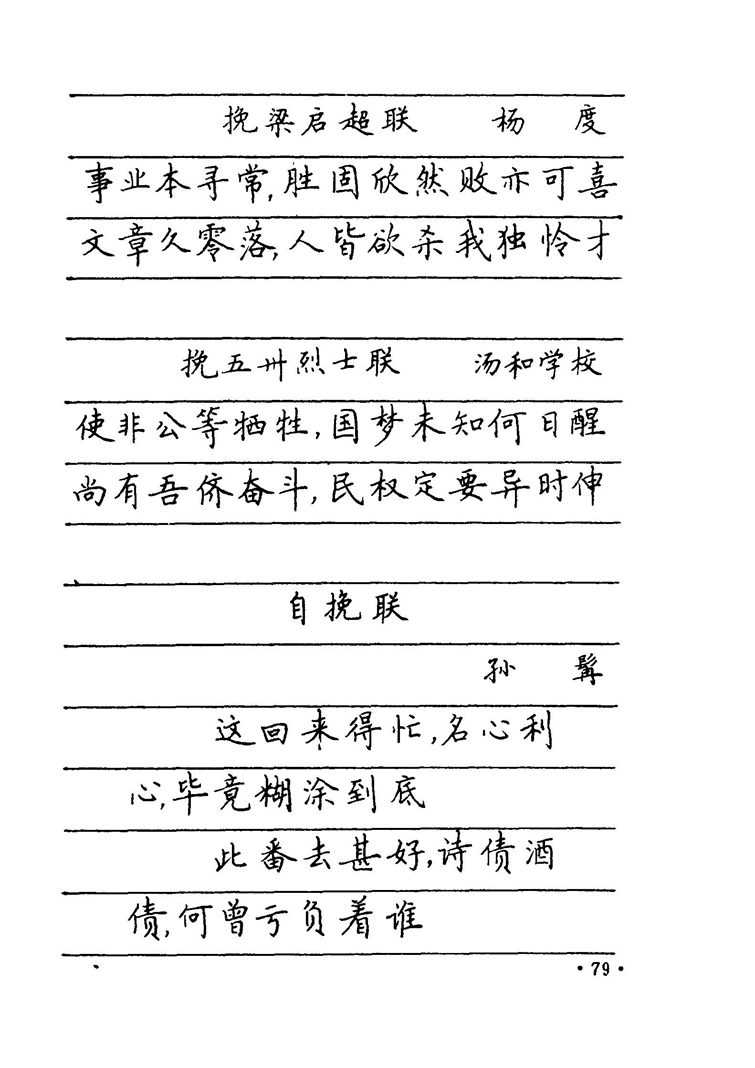 挽梁启超联 杨 度
事业本寻常,胜固欣然败亦可喜
文章久零落,人皆欲杀我独怜才
挽五卅烈士联 汤和学校
使非公等牺牲,国梦未知何日醒
尚有吾侪奋斗,民权定要异时伸
自挽联
孙 髯
这回来得忙,名心利
心,毕竟糊涂到底
此番去甚好,诗债酒
债,何曾亏负着谁
·79·